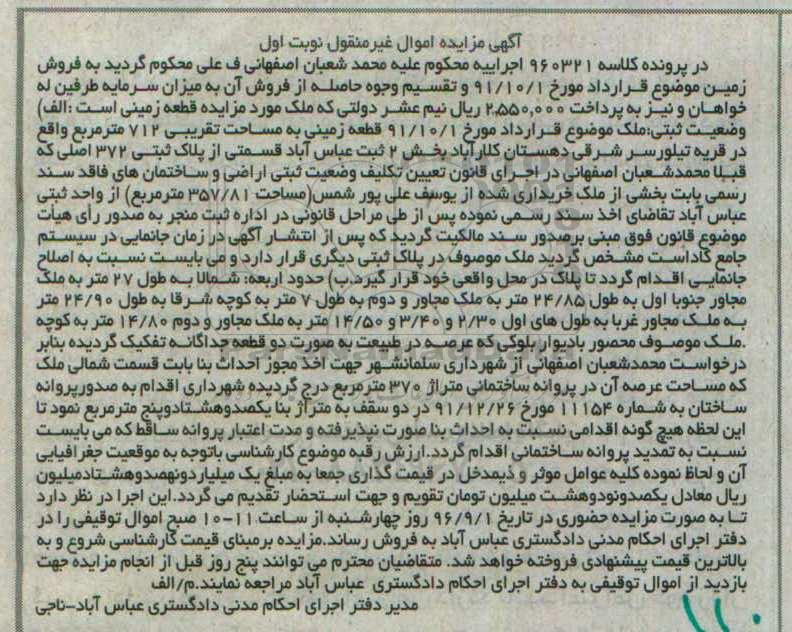 آگهی مزایده اموال غیرمنقول نوبت اول
در پرونده کلاسه ۹۶۰۳۲۱ اجراییه محکوم علیه محمد شعبان اصفهانی ف علی محکوم گردید به فروش
زمین موضوع قرارداد مورخ ۹۱/۱۰/۱ و تقسیم وجوه حاصله از فروش آن به میزان سرمایه طرفین له
خواهان و نیز به پرداخت ۲،۵۵۰،۰۰۰ ریال نیم عشر دولتی که ملک مورد مزایده قطعه زمینی است :الف)
وضعیت ثبتی:ملک موضوع قرارداد مورخ ۹۱/۱۰/۱ قطعه زمینی به مساحت تقریبی ۷۱۲ مترمربع واقع
در قریه تیلورسر شرقی دهستان کلارآباد بخش ۲ ثبت عباس آباد قسمتی از پلاک ثبتی ۳۷۲ اصلی که
قبلا محمدشعبان اصفهانی در اجرای قانون تعیین تکلیف وضعیت ثبتی اراضی و ساختمان های فاقد سند
رسمی بابت بخشی از ملک خریداری شده از یوسف علی پور شمس(مساحت ۳۵۷/۸۱ مترمربع) از واحد ثبتی
عباس آباد تقاضای اخذ سند رسمی نموده پس از طی مراحل قانونی در اداره ثبت منجر به صدور رأی هیأت
موضوع قانون فوق مبنی برصدور سند مالکیت گردید که پس از انتشار آگهی در زمان جانمایی در سیستم
جامع کاداست مشخص گردید ملک موصوف در پلاک ثبتی دیگری قرار دارد و می بایست نسبت به اصلاح
جانمایی اقدام گردد تا پلاک در محل واقعی خود قرار گیرد.ب) حدود اربعه: شمالا به طول ۲۷ متر به ملک
مجاور جنوبا اول به طول ۲۴/۸۵ متر به ملک مجاور و دوم به طول ۷ متر به کوچه شرقا به طول ۲۴/۹۰ متر
به ملک مجاور غربا به طول های اول ۲/۳۰ و ۳/۴۰ و ۱۴/۵۰ متر به ملک مجاور و دوم ۱۴/۸۰ متر به کوچه
.ملک موصوف محصور بادیوار بلوکی که عرصه در طبیعت به صورت دو قطعه جداگانه تفکیک گردیده بنابر
درخواست محمدشعبان اصفهانی از شهرداری سلمانشهر جهت اخذ مجوز احداث بنا بابت قسمت شمالی ملک
که مساحت عرصه آن در پروانه ساختمانی متراژ ۳۷۰ مترمربع درج گردیده شهرداری اقدام به صدورپروانه
ساختان به شماره ۱۱۱۵۴ مورخ ۹۱/۱۲/۲۶ در دو سقف به متراژ بنا یکصدوهشتادوپنج مترمربع نمود تا
این لحظه هیچ گونه اقدامی نسبت به احداث بنا صورت نپذیرفته و مدت اعتبار پروانه ساقط که می بایست
نسبت به تمدید پروانه ساختمانی اقدام گردد.ارزش رقبه موضوع کارشناسی باتوجه به موقعیت جغرافیایی
آن و لحاظ نموده کلیه عوامل موثر و ذیمدخل در قیمت گذاری جمعا به مبلغ یک میلیاردونهصدوهشتادمیلیون
ریال معادل یکصدونودوهشت میلیون تومان تقویم و جهت استحضار تقدیم می گردد.این اجرا در نظر دارد
تا به صورت مزایده حضوری در تاریخ ۹۶/۹/۱ روز چهارشنبه از ساعت ۱۱-۱۰ صبح اموال توقیفی را در
دفتر اجرای احکام مدنی دادگستری عباس آباد به فروش رساند.مزایده برمبنای قیمت کارشناسی شروع و به
بالاترین قیمت پیشنهادی فروخته خواهد شد. متقاضیان محترم می توانند پنج روز قبل از انجام مزایده جهت
بازدید از اموال توقیفی به دفتر اجرای احکام دادگستری عباس آباد مراجعه نمایند.م/الف
مدیر دفتر اجرای احکام مدنی دادگستری عباس آباد-ناجی
۱۱۰